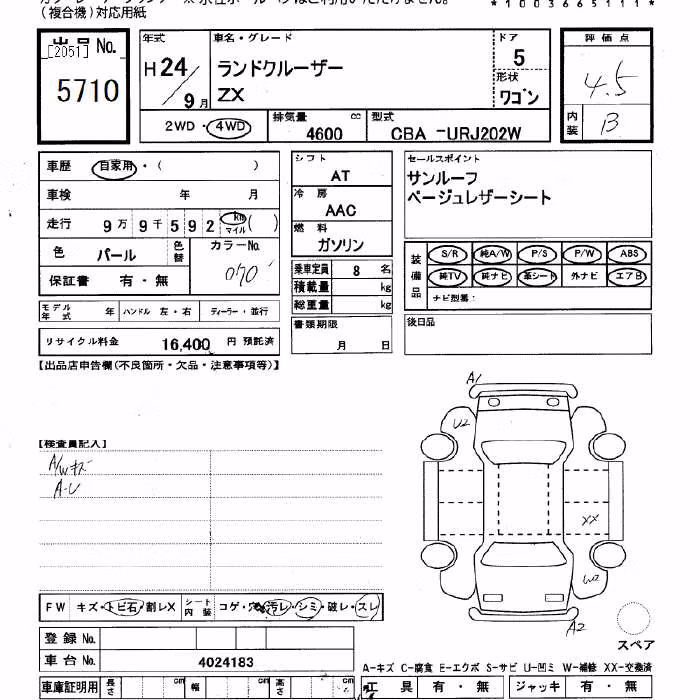 *1003665111*
(複合機)対応用紙
出品 No.
[2051]
5710
年式
H 24/9月
車名・グレード
ランドクルーザー
ZX
ドア
5
形状
ワゴン
評価点
4.5
内装
B
2WD・4WD
排気量 cc
4600
型式
CBA -URJ202W
車歴 自家用・( )
車検 年 月
走行 9万9千592 km マイル ( )
色 パール 色替
カラーNo.
070
保証書 有・無
シフト
AT
冷房
AAC
燃料
ガソリン
乗車定員 8 名
積載量 kg
総重量 kg
書類期限
月 日
セールスポイント
サンルーフ
ベージュレザーシート
装備品
S/R 純A/W P/S P/W ABS
純TV 純ナビ 革シート 外ナビ エアB
ナビ型番:
後日品
モデル年式 年 ハンドル 左・右 ディーラー・並行
リサイクル料金 16,400 円 預託済
【出品店申告欄(不良箇所・欠品・注意事項等)】
【検査員記入】
A/Wキズ
A-U
A1
U2
XX
W2
A2
スペア
FW キズ・トビ石・割レX シート内装 コゲ・穴・汚レ・シミ・破レ・スレ
登録 No.
車台 No. 4024183
A-キズ C-腐食 E-エクボ S-サビ U-凹ミ W-補修 XX-交換済
車庫証明用 長さ cm 幅 cm 高さ cm
工具 有・無 ジャッキ 有・無